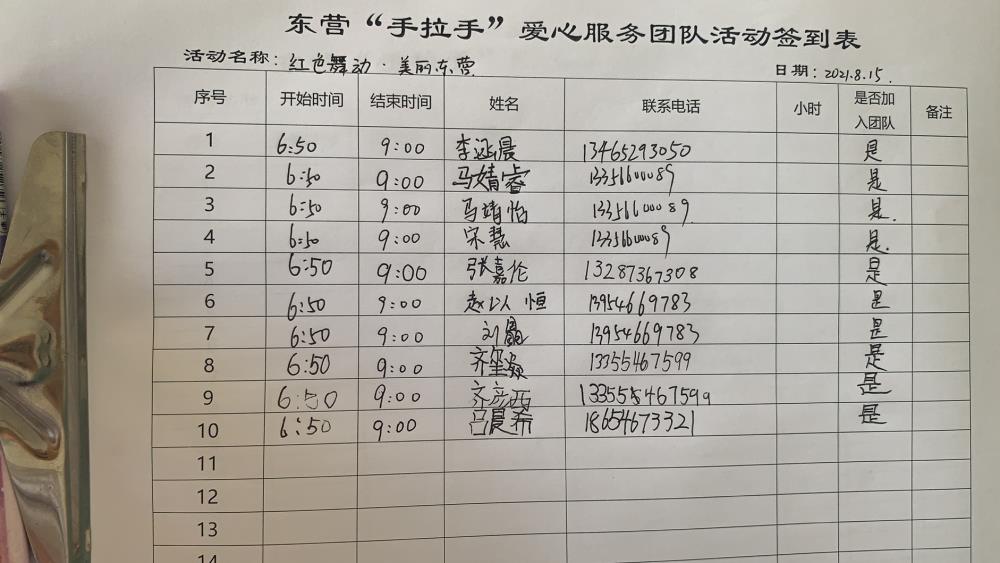 东营“手拉手”爱心服务团队活动签到表
活动名称：红色舞动·美丽东营 日期：2021.8.15.
序号 开始时间 结束时间 姓名 联系电话 小时 是否加入团队 备注
1 6:50 9:00 李涵晨 13465293050 是
2 6:50 9:00 马婧睿 13356600089 是
3 6:50 9:00 马靖怡 13356600089. 是.
4 6:50 9:00 宋慧 13356600089 是.
5 6:50 9:00 张嘉伦 13287367308 是
6 6:50 9:00 赵以恒 13954669783 是
7 6:50 9:00 刘 13954669783 是
8 6:50 9:00 齐 13355467599 是
9 6:50 9:00 齐彦西 133555467599 是
10 6:50 9:00 吕晨希 18654673321 是
11
12
13
14